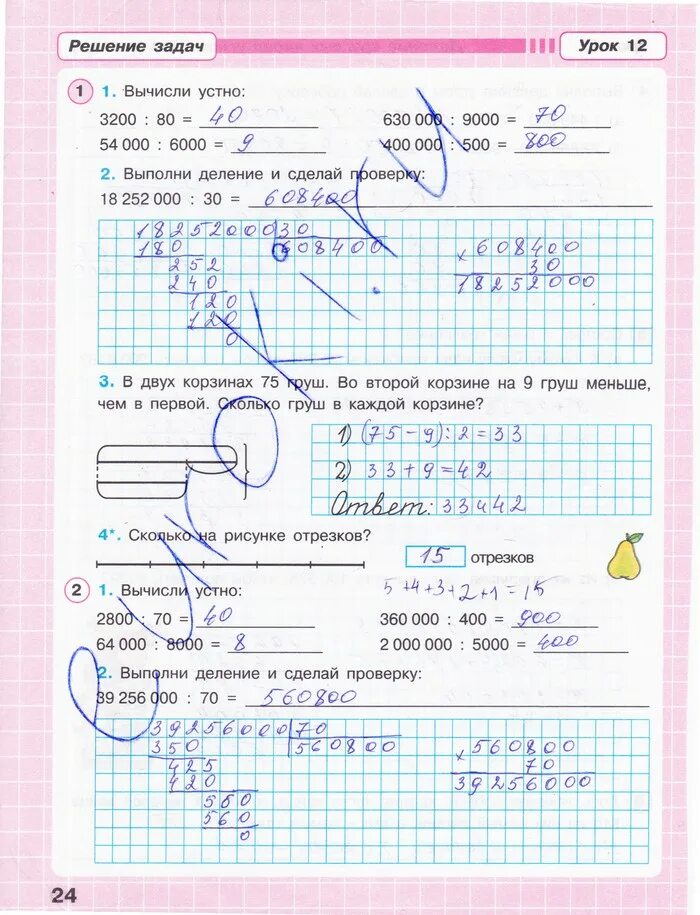 Решение задач Урок 12
1 1. Вычисли устно:
3200 : 80 = 40 630 000 : 9000 = 70
54 000 : 6000 = 9 400 000 : 500 = 800
2. Выполни деление и сделай проверку:
18 252 000 : 30 = 608400
18252000 30
180 608400
252
240
120
120
0
× 608400
30
18252000
3. В двух корзинах 75 груш. Во второй корзине на 9 груш меньше,
чем в первой. Сколько груш в каждой корзине?
1) (75-9):2=33
2) 33+9=42
Ответ: 33 и 42
4*. Сколько на рисунке отрезков?
15 отрезков
5+4+3+2+1=15
2 1. Вычисли устно:
2800 : 70 = 40 360 000 : 400 = 900
64 000 : 8000 = 8 2 000 000 : 5000 = 400
2. Выполни деление и сделай проверку:
39 256 000 : 70 = 560800
39256000 70
350 560800
425
420
560
560
0
× 560800
70
39256000
24